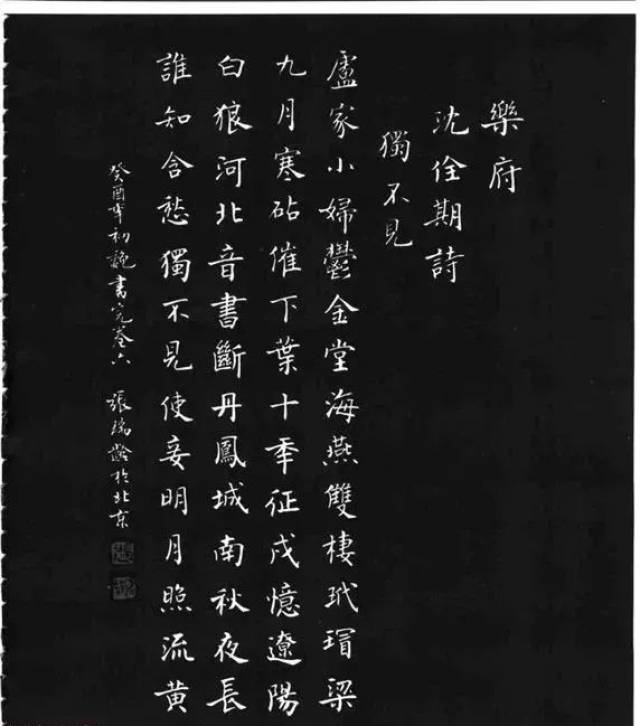 樂府
沈佺期詩
獨不見
盧家小婦鬱金堂海燕雙棲玳瑁梁
九月寒砧催下葉十年征戍憶遼陽
白狼河北音書斷丹鳳城南秋夜長
誰知含愁獨不見使妾明月照流黃
癸酉年初魏書完卷六 張瑞齡於北京